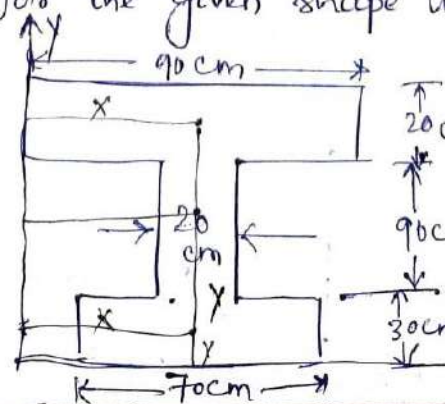 the given shape
Y
90 cm
X
20
20
cm
90
Y
X
30cm
Y
70cm